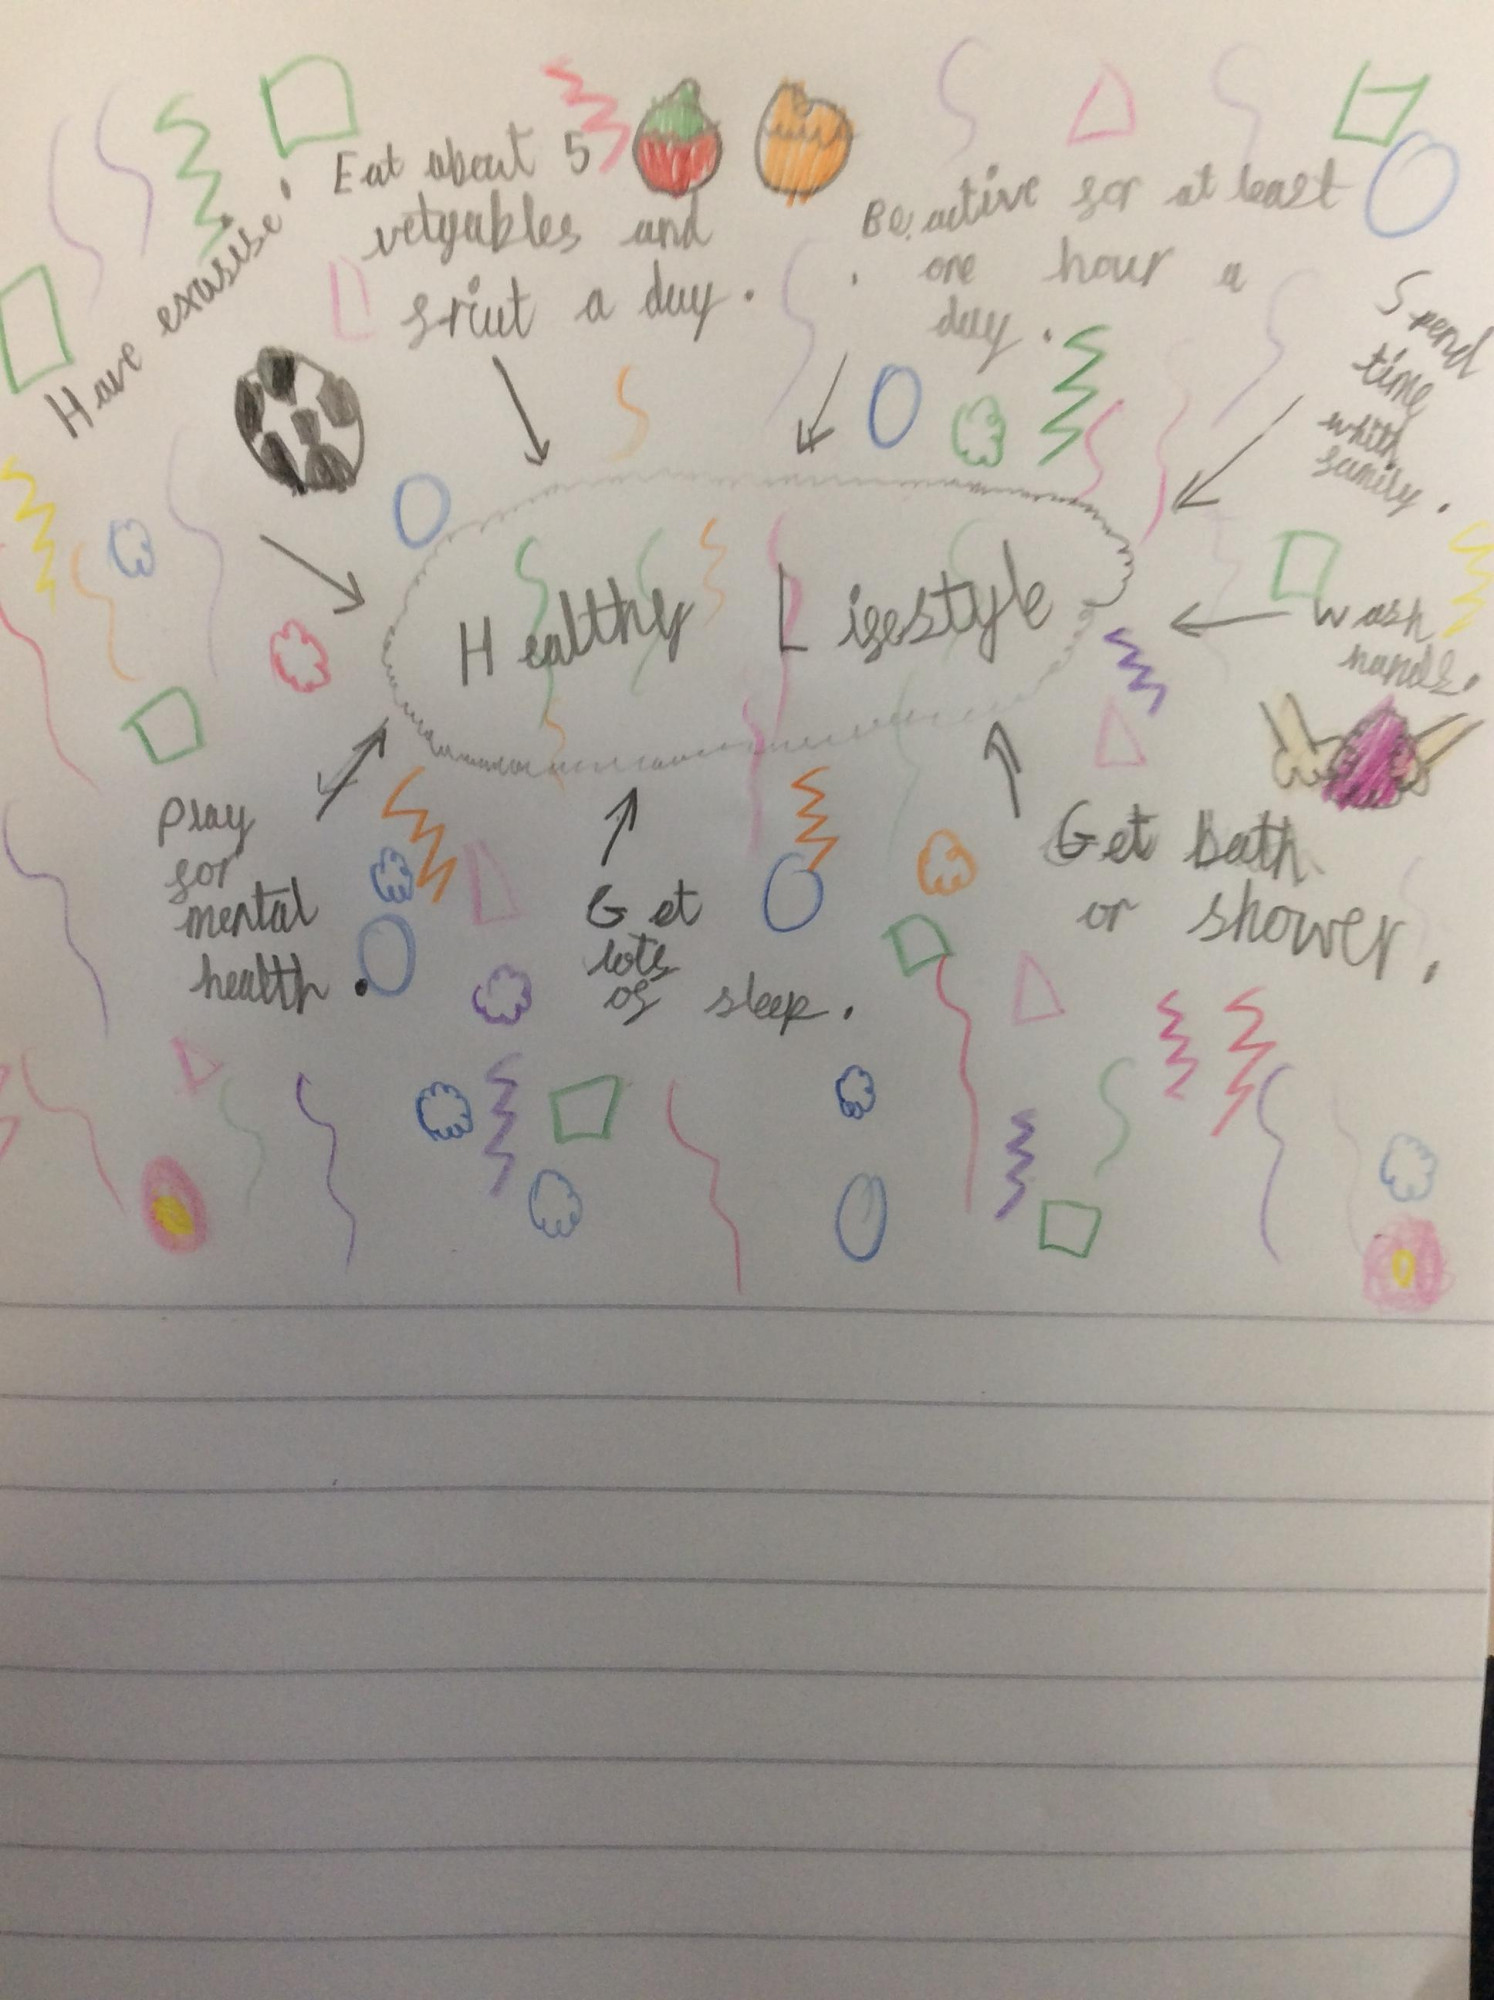 Have exasise.
Eat about 5
vetgabless and
friut a day.
Be active for at least
one hour a
day.
Spend
time
whith
family.
Healthy Lifestyle
Wash
hands.
Play
for
mental
health.
Get
lots
of sleep.
Get bath
or shower.